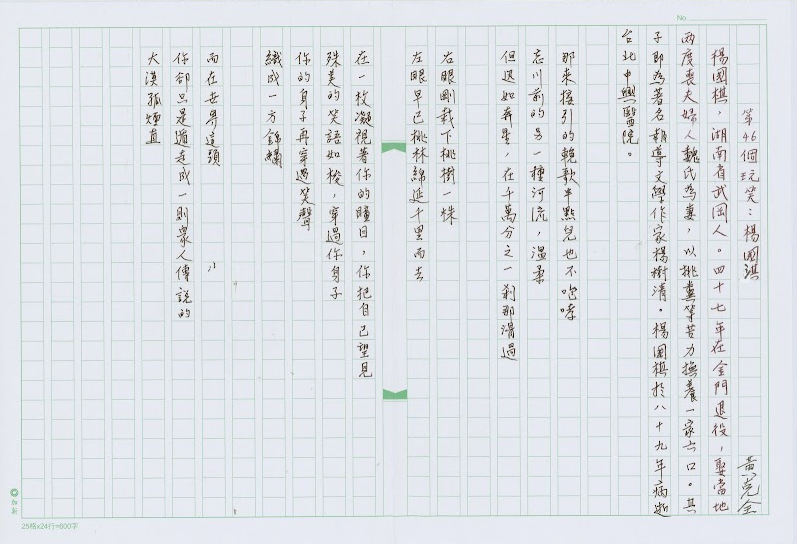 No.
第46個玩笑：楊國棋
黃克全
楊國棋，湖南省武岡人。四十七年在金門退役，娶當地
兩度喪夫婦人魏氏為妻，以挑糞等苦力撫養一家六口。其
子即為著名報導文學作家楊樹清。楊國棋於八十九年病逝
台北中興醫院。
那來接引的輓歌半點兒也不咆哮
忘川前的另一種河流，溫柔
但迅如奔星，在千萬分之一剎那滑過
右眼剛栽下桃樹一株
左眼早已桃林綿延千里而去
在一枚凝視著你的瞳目，你把自己望見
殊美的笑語如梭，穿過你身子
你的身子再穿過笑聲
織成一方錦繡
而在世界這頭
你卻只是遁走成一則眾人傳說的
大漠孤煙直
加新
25格x24行=600字